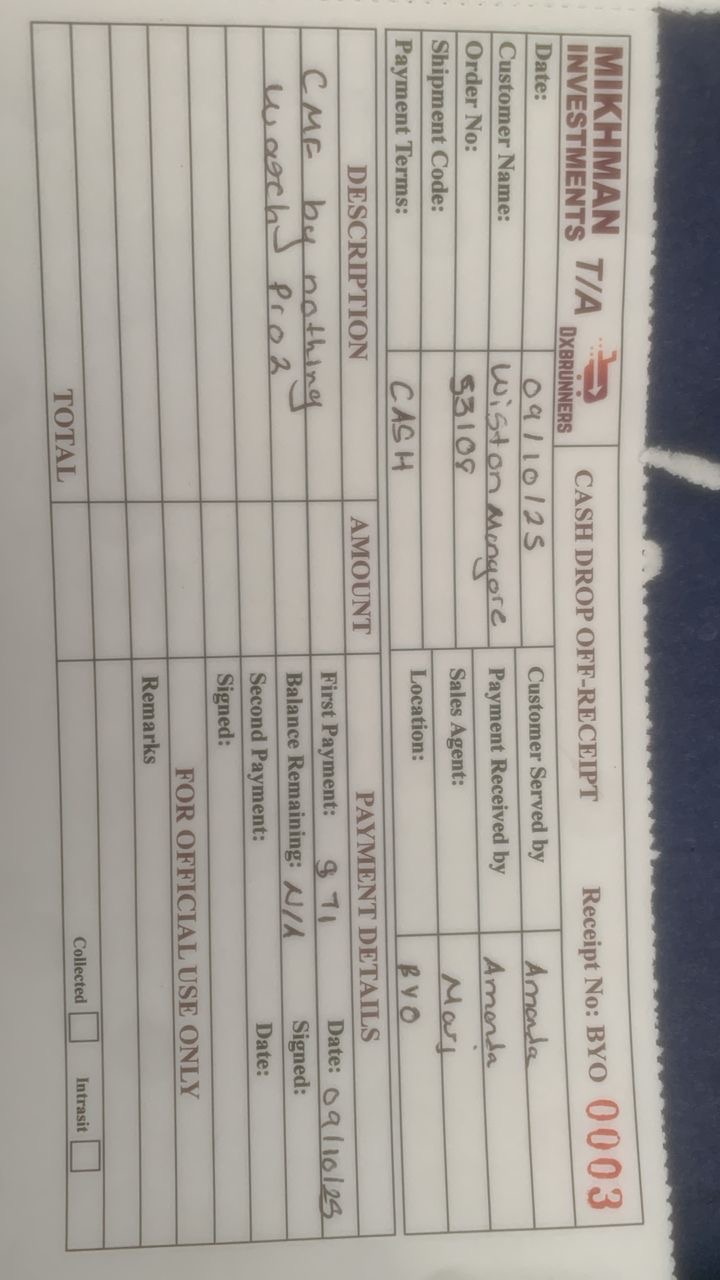 MIKHMAN INVESTMENTS T/A DXBRUNNERS
CASH DROP OFF-RECEIPT Receipt No: BYO 0003
Date: 09/10/25 Customer Served by Amanda
Customer Name: Wiston Mungore Payment Received by Amanda
Order No: 53108 Sales Agent: Mary
Shipment Code: Location: BYO
Payment Terms: CASH
DESCRIPTION AMOUNT PAYMENT DETAILS
CMF by nothing First Payment: $ 71 Date: 09/10/25
Pro 2 Balance Remaining: N/A Signed:
Second Payment: Date:
Signed:
FOR OFFICIAL USE ONLY
Remarks
TOTAL Collected Intrasit